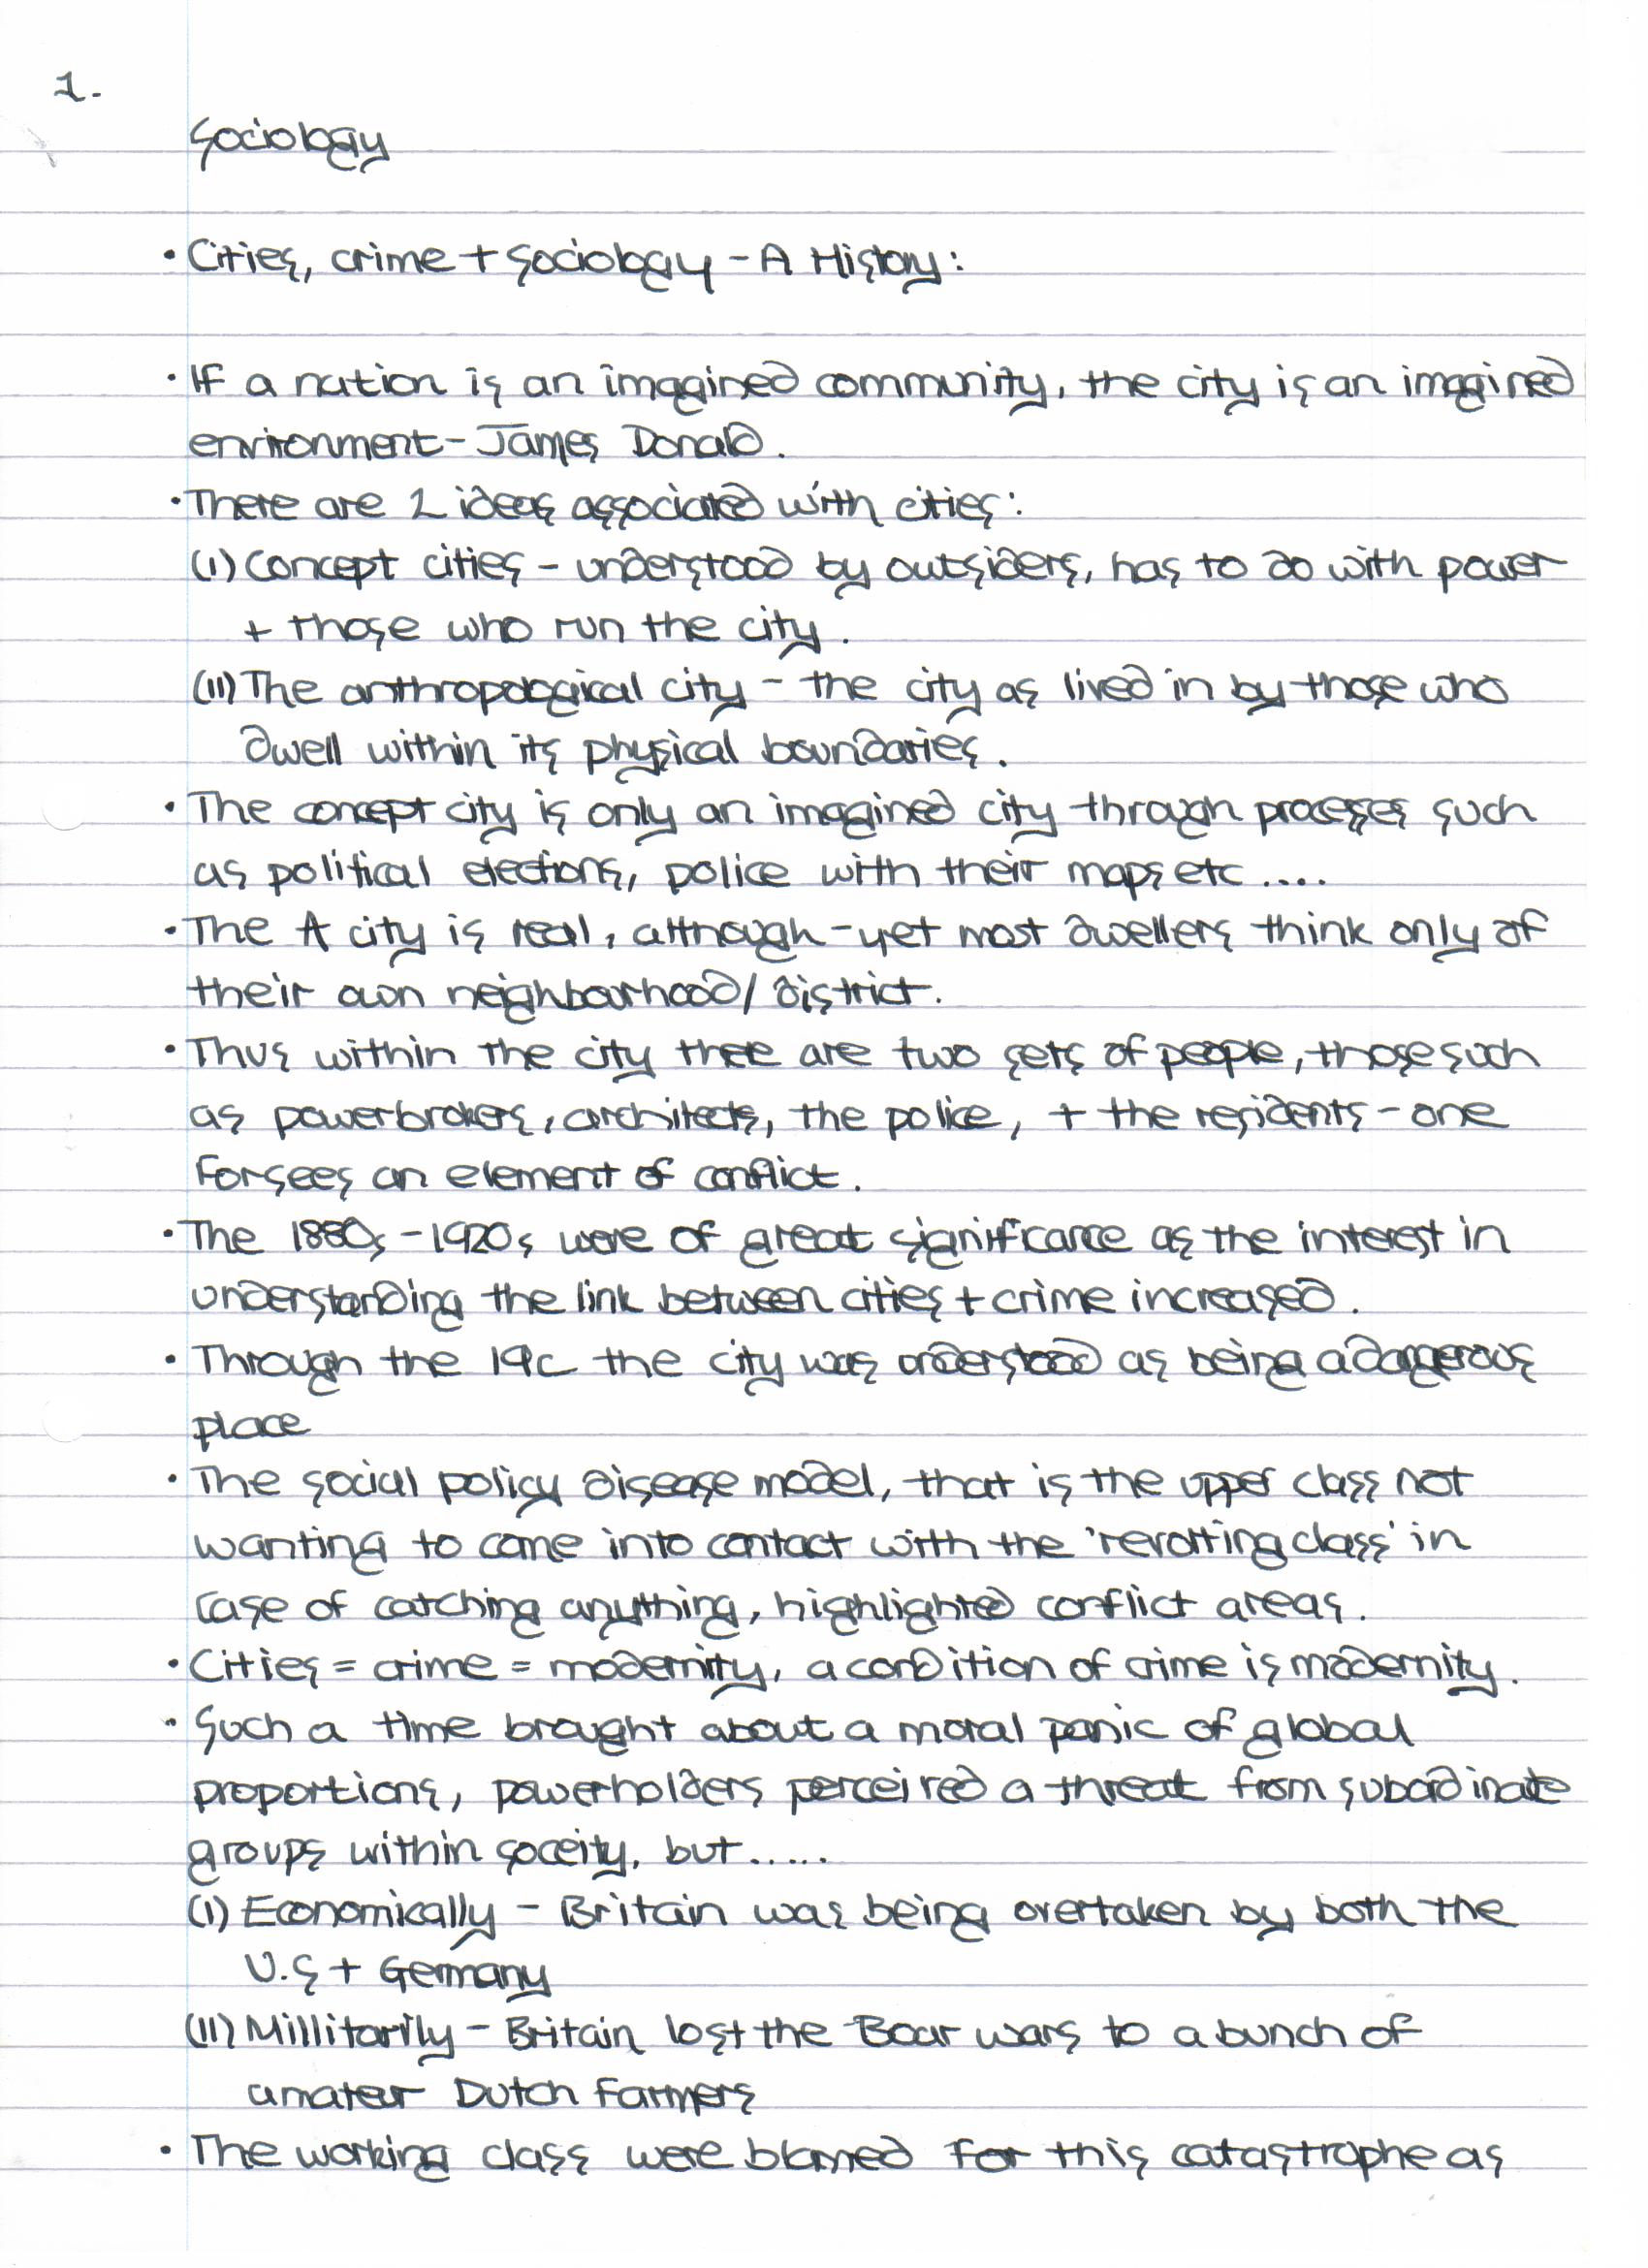 1.
Sociology
• Cities, crime + Sociology - A History:
• If a nation is an imagined community, the city is an imagined
environment - James Donald.
• There are 2 ideas associated with cities:
(I) Concept cities - understood by outsiders, has to do with power
+ those who run the city.
(II) The anthropological city - the city as lived in by those who
dwell within its physical boundaries.
• The concept city is only an imagined city through proceses such
as political elections, police with their maps etc ....
• The A city is real, although - yet most dwellers think only of
their own neighbourhood / district.
• Thus within the city there are two sets of people, those such
as powerbrokers, architects, the police, + the residents - one
forsees an element of conflict.
• The 1880s - 1920s were of great significance as the interest in
understanding the link between cities + crime increased.
• Through the 19c the city was understood as being a dangerous
place
• The social policy disease model, that is the upper class not
wanting to come into contact with the 'revolting class' in
case of catching anything, highlighted conflict areas.
• Cities = crime = modernity, a condition of crime is modernity.
• Such a time brought about a moral panic of global
proportions, powerholders perceived a threat from subordinate
groups within soceity, but .....
(I) Economically - Britain was being overtaken by both the
U.S + Germany
(II) Millitarily - Britain lost the Boar wars to a bunch of
amateur Dutch Farmers
• The working class were blamed for this catastrophe as